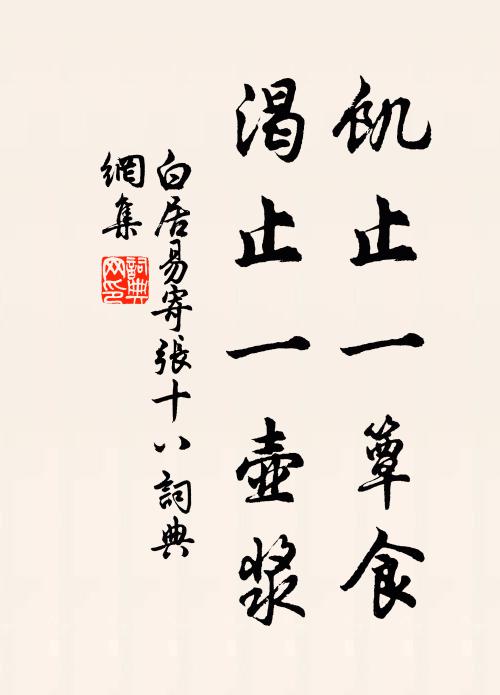 飢止一簞食
渴止一壺漿
白居易寄張十八詞典
網集
詞典
網印